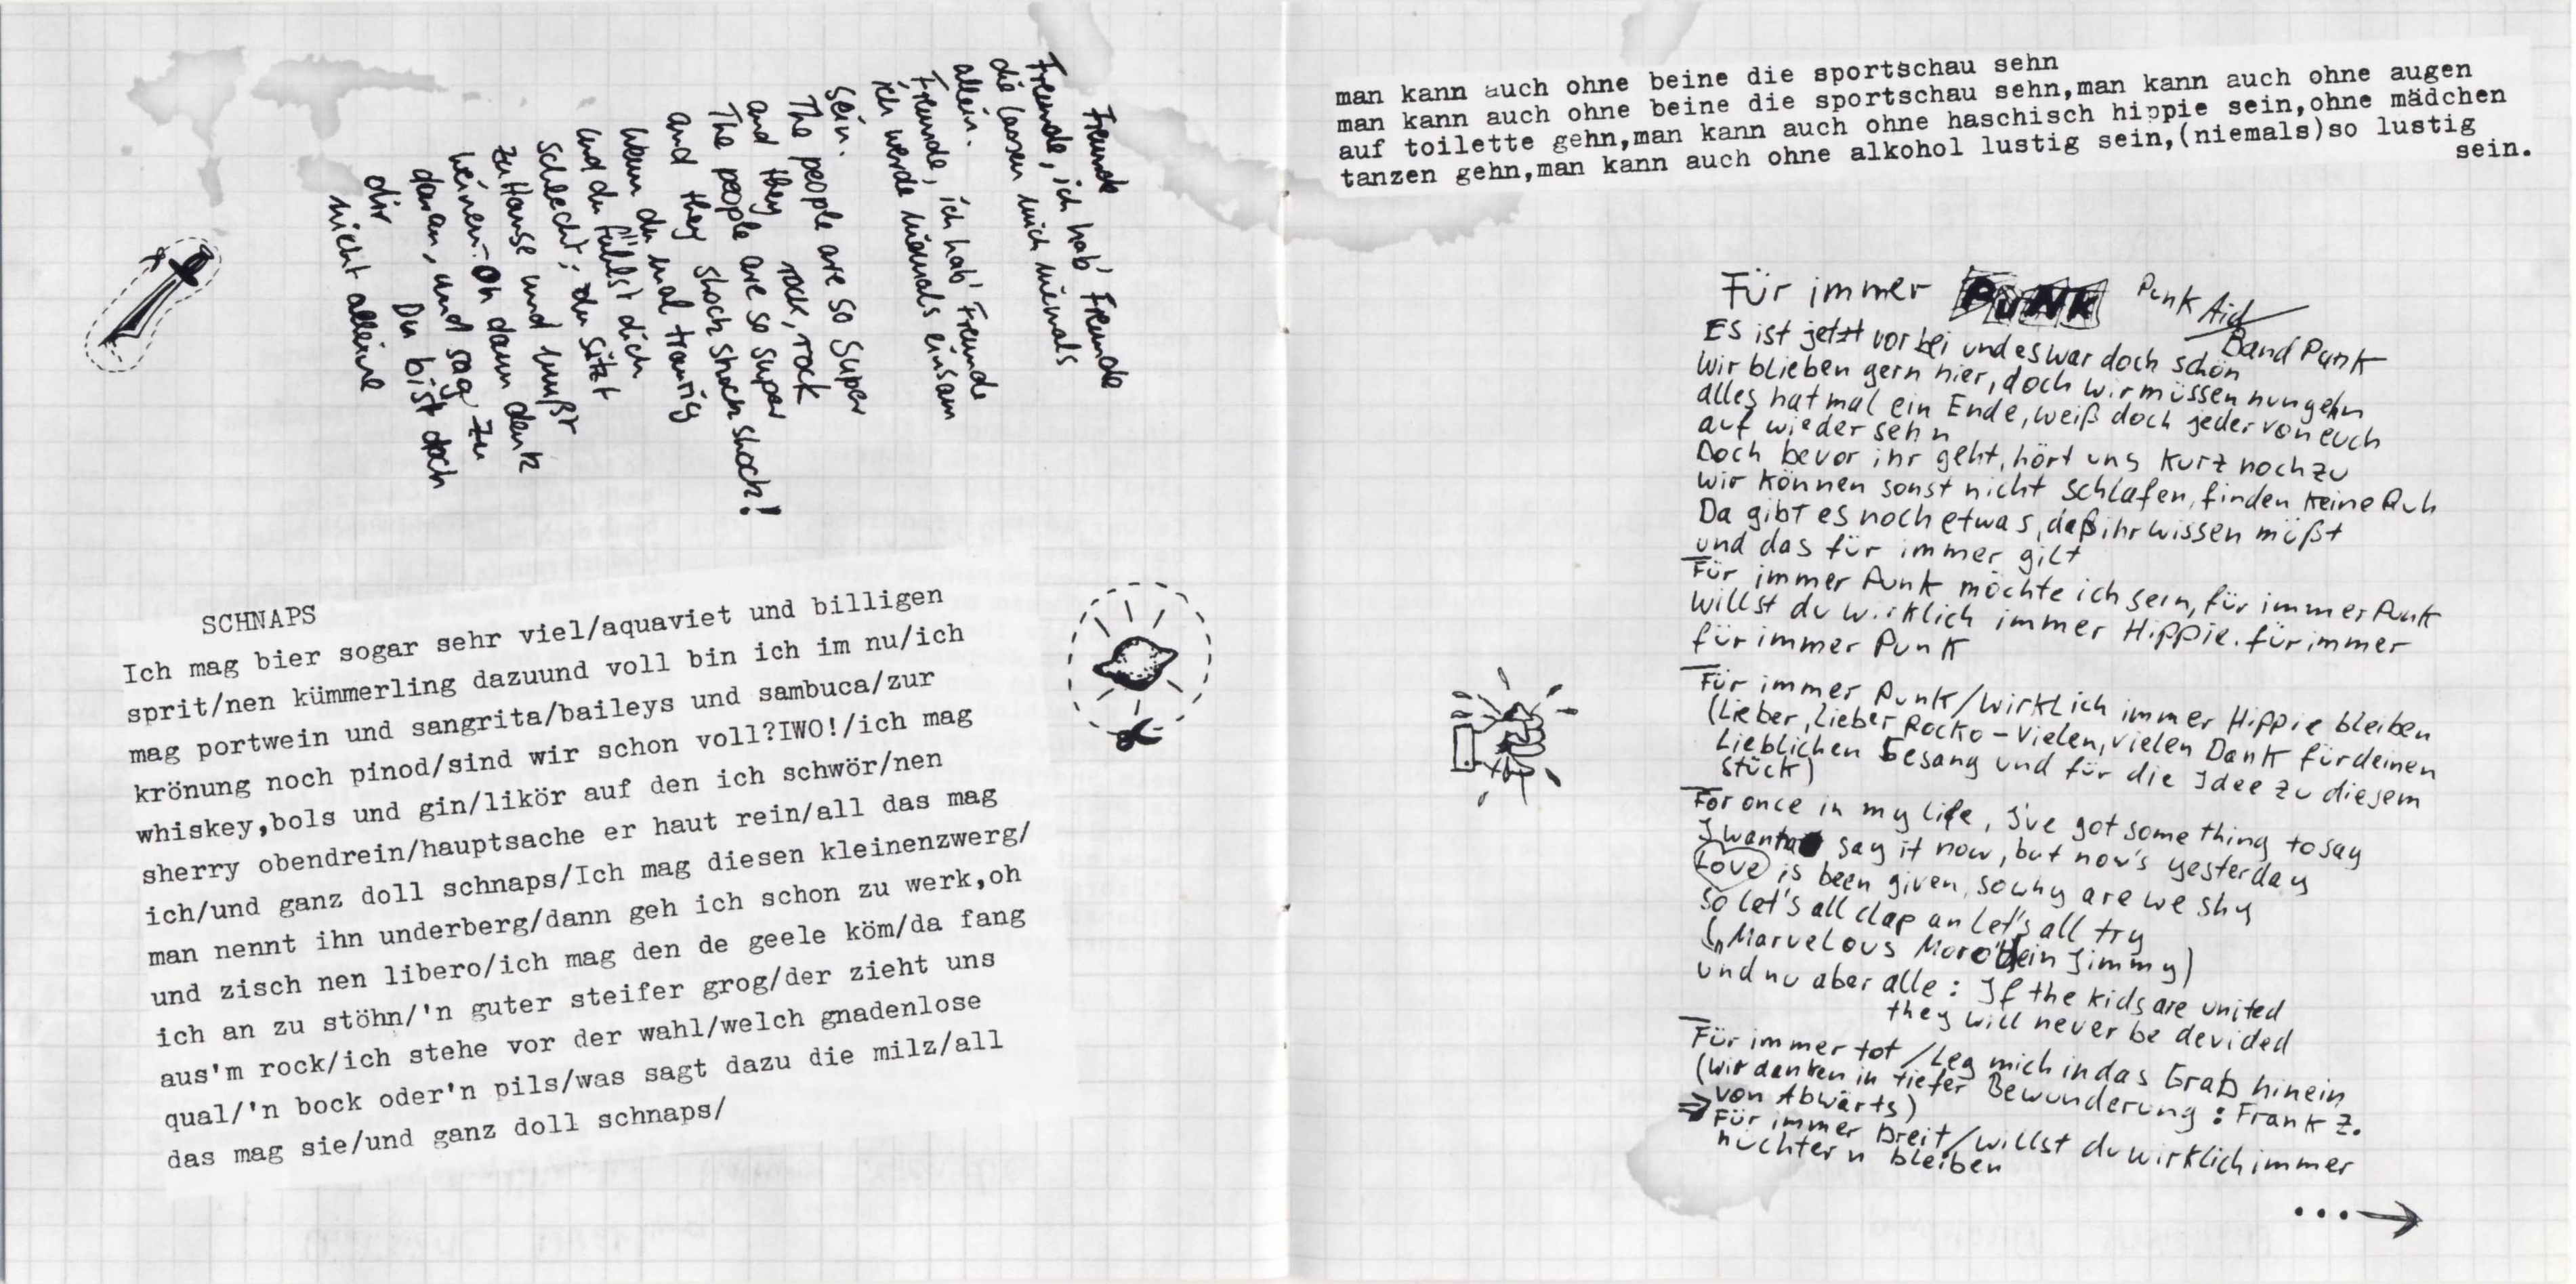 Freunde
Freunde, ich hab' Freunde
die lassen mich niemals
allein.
Freunde, ich hab' Freunde
ich werde niemals einsam
sein.
The people are so super
and they rock, rock
The people are so super
and they shock shock shock!
Wenn du mal traurig
und du fühlst dich
schlecht; du sitzt
zu Hause und mußt
weinen - oh dann denk
daran, und sag zu
dir Du bist doch
nicht alleine
SCHNAPS
Ich mag bier sogar sehr viel/aquaviet und billigen
sprit/nen kümmerling dazuund voll bin ich im nu/ich
mag portwein und sangrita/baileys und sambuca/zur
krönung noch pinod/sind wir schon voll?IWO!/ich mag
whiskey,bols und gin/likör auf den ich schwör/nen
sherry obendrein/hauptsache er haut rein/all das mag
ich/und ganz doll schnaps/Ich mag diesen kleinenzwerg/
man nennt ihn underberg/dann geh ich schon zu werk,oh
und zisch nen libero/ich mag den de geele köm/da fang
ich an zu stöhn/'n guter steifer grog/der zieht uns
aus'm rock/ich stehe vor der wahl/welch gnadenlose
qual/'n bock oder'n pils/was sagt dazu die milz/all
das mag sie/und ganz doll schnaps/
man kann auch ohne beine die sportschau sehn
man kann auch ohne beine die sportschau sehn,man kann auch ohne augen
auf toilette gehn,man kann auch ohne haschisch hippie sein,ohne mädchen
tanzen gehn,man kann auch ohne alkohol lustig sein,(niemals)so lustig
sein.
Für immer PUNK Punk Aid
Band Punk
Es ist jetzt vorbei und es war doch schön
Wir blieben gern hier, doch wir müssen nun gehn
alles hat mal ein Ende, weiß doch jeder von euch
auf wieder sehn
Doch bevor ihr geht, hört uns kurz noch zu
wir können sonst nicht schlafen, finden keine Ruh
Da gibt es noch etwas, daß ihr wissen müßt
und das für immer gilt
Für immer Punk möchte ich sein, für immer Punk
willst du wirklich immer Hippie. für immer
für immer Punk
Für immer Punk/wirklich immer Hippie bleiben
(Lieber, lieber Rocko - Vielen, vielen Dank für deinen
lieblichen Gesang und für die Idee zu diesem
stück)
For once in my life, I've got something to say
I wanta say it now, but now's yesterday
Love is been given, so why are we shy
so let's all clap an let's all try
("Marvelous Moro" dein Jimmy)
und nu aber alle : If the kids are united
they will never be devided
Für immer tot/Leg mich in das Grab hinein
(wir danken in tiefer Bewunderung : Frank Z.
von Abwärts)
⇒ Für immer breit/willst du wirklich immer
nüchtern bleiben
...→